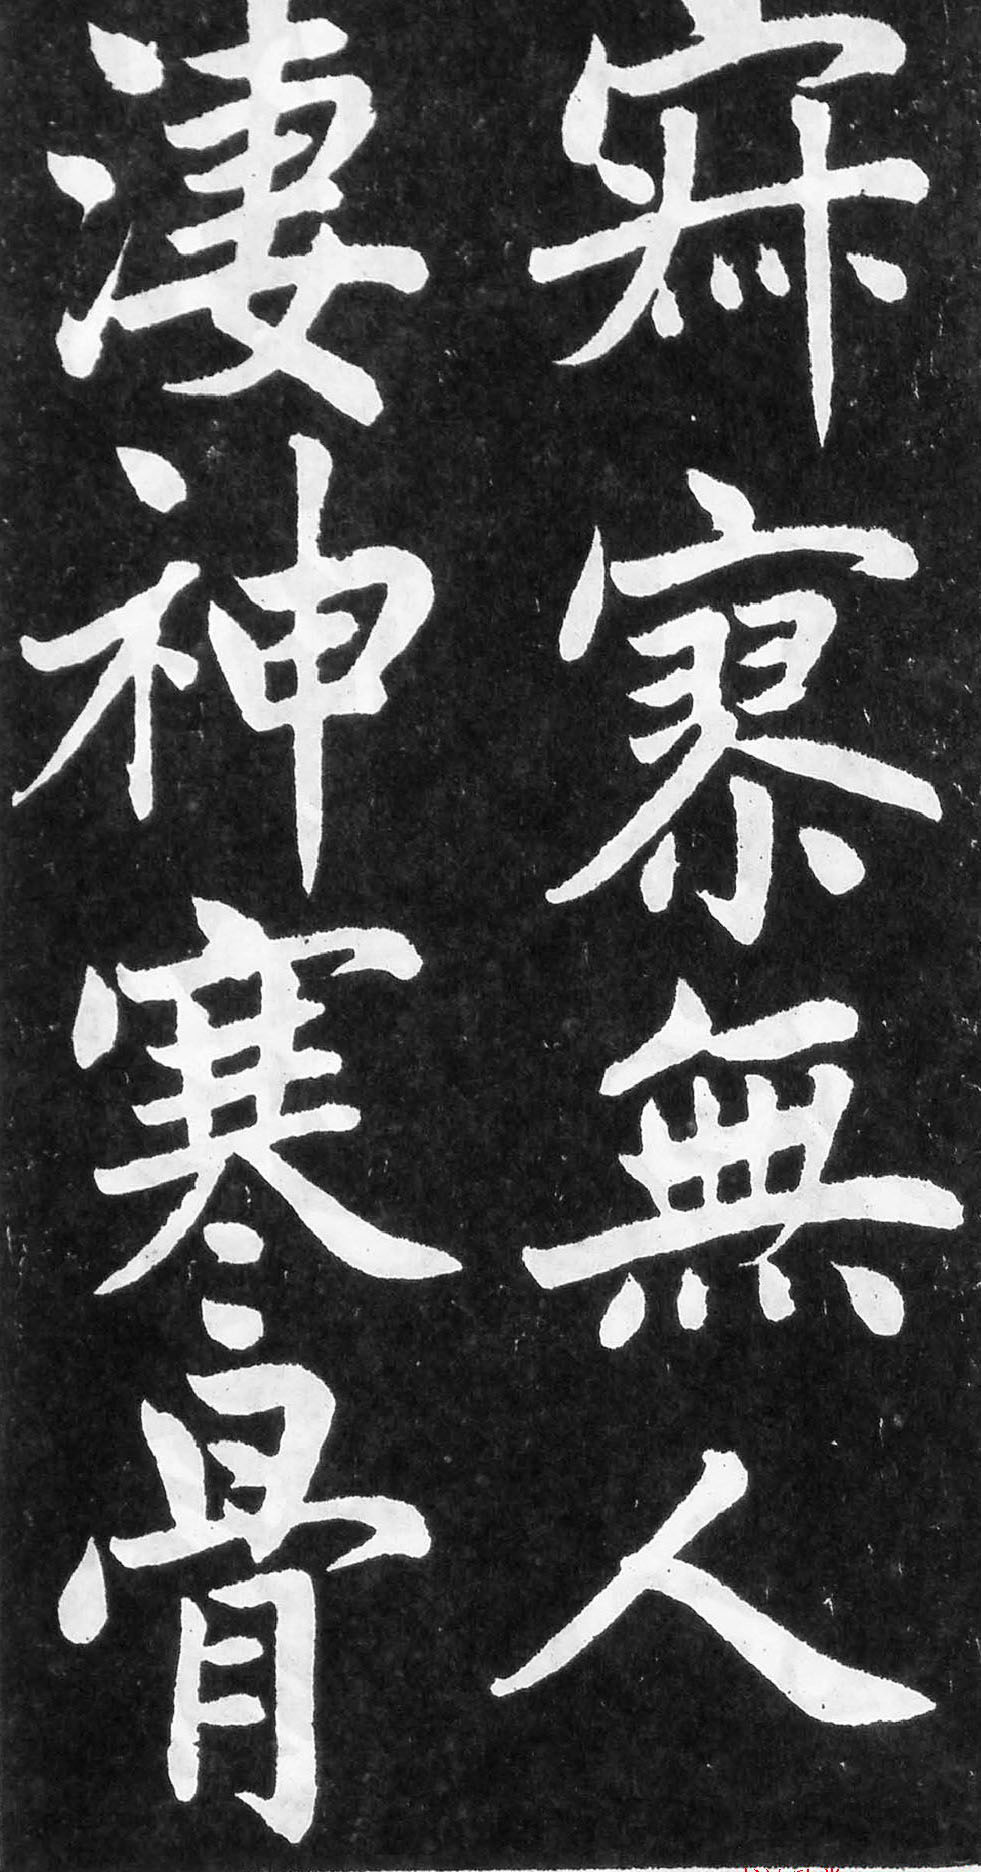 寂寥無人
淒神寒骨